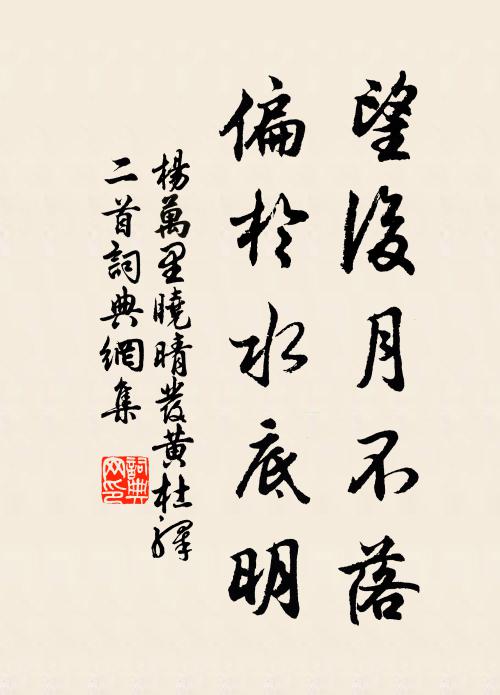 望後月不落
偏於水底明
楊萬里曉晴發黄杜驛
二首詞典網集
詞典
网印